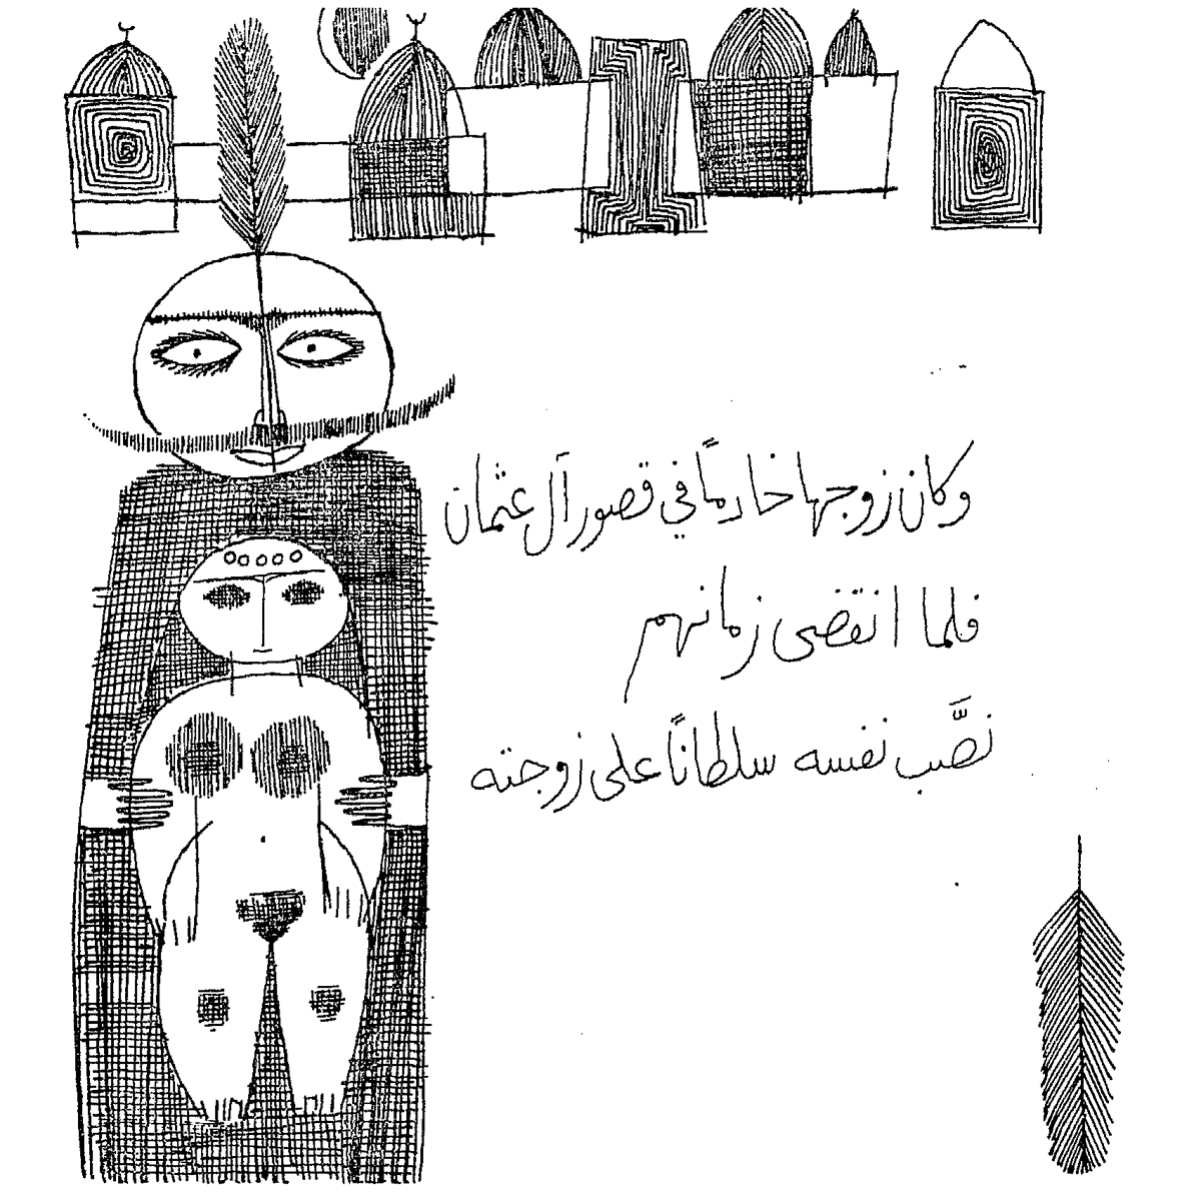 وكان زوجها خادمًا في قصور آل عثمان
فلما انقضى زمانهم
نصَّب نفسه سلطانًا على زوجته